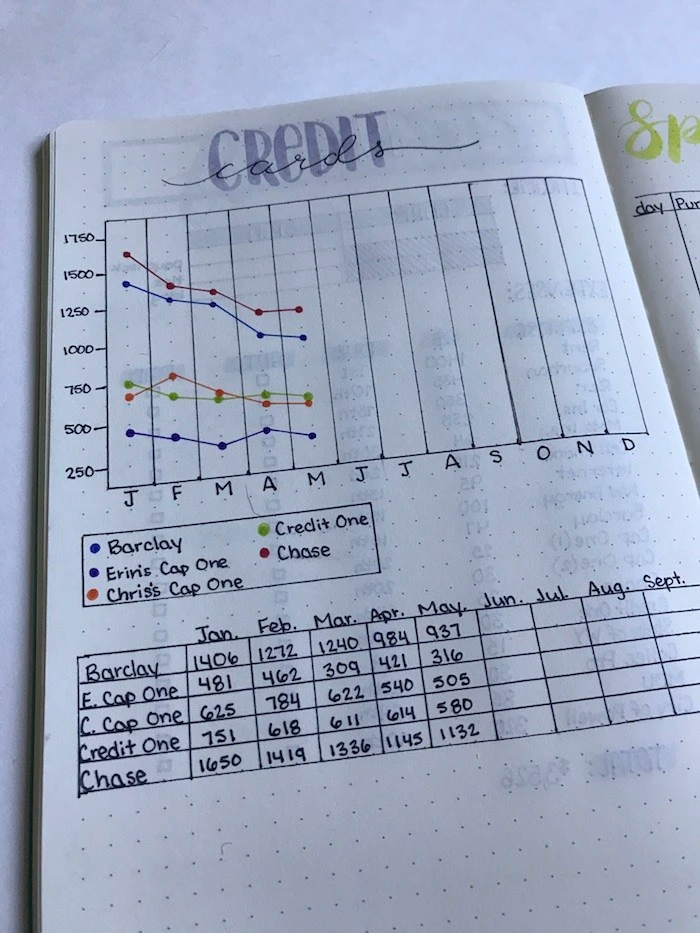 CREDIT
cards
Sp
day Pur
1750
1500
1250
1000
750
500
250
J F M A M J J A S O N D
Barclay
Erin's Cap One
Chris's Cap One
Credit One
Chase
Jan. Feb. Mar. Apr. May. Jun. Jul. Aug. Sept.
Barclay 1406 1272 1240 984 937
E. Cap One 481 462 309 421 316
C. Cap One 625 784 622 540 505
Credit One 751 618 611 614 580
Chase 1650 1419 1336 1145 1132